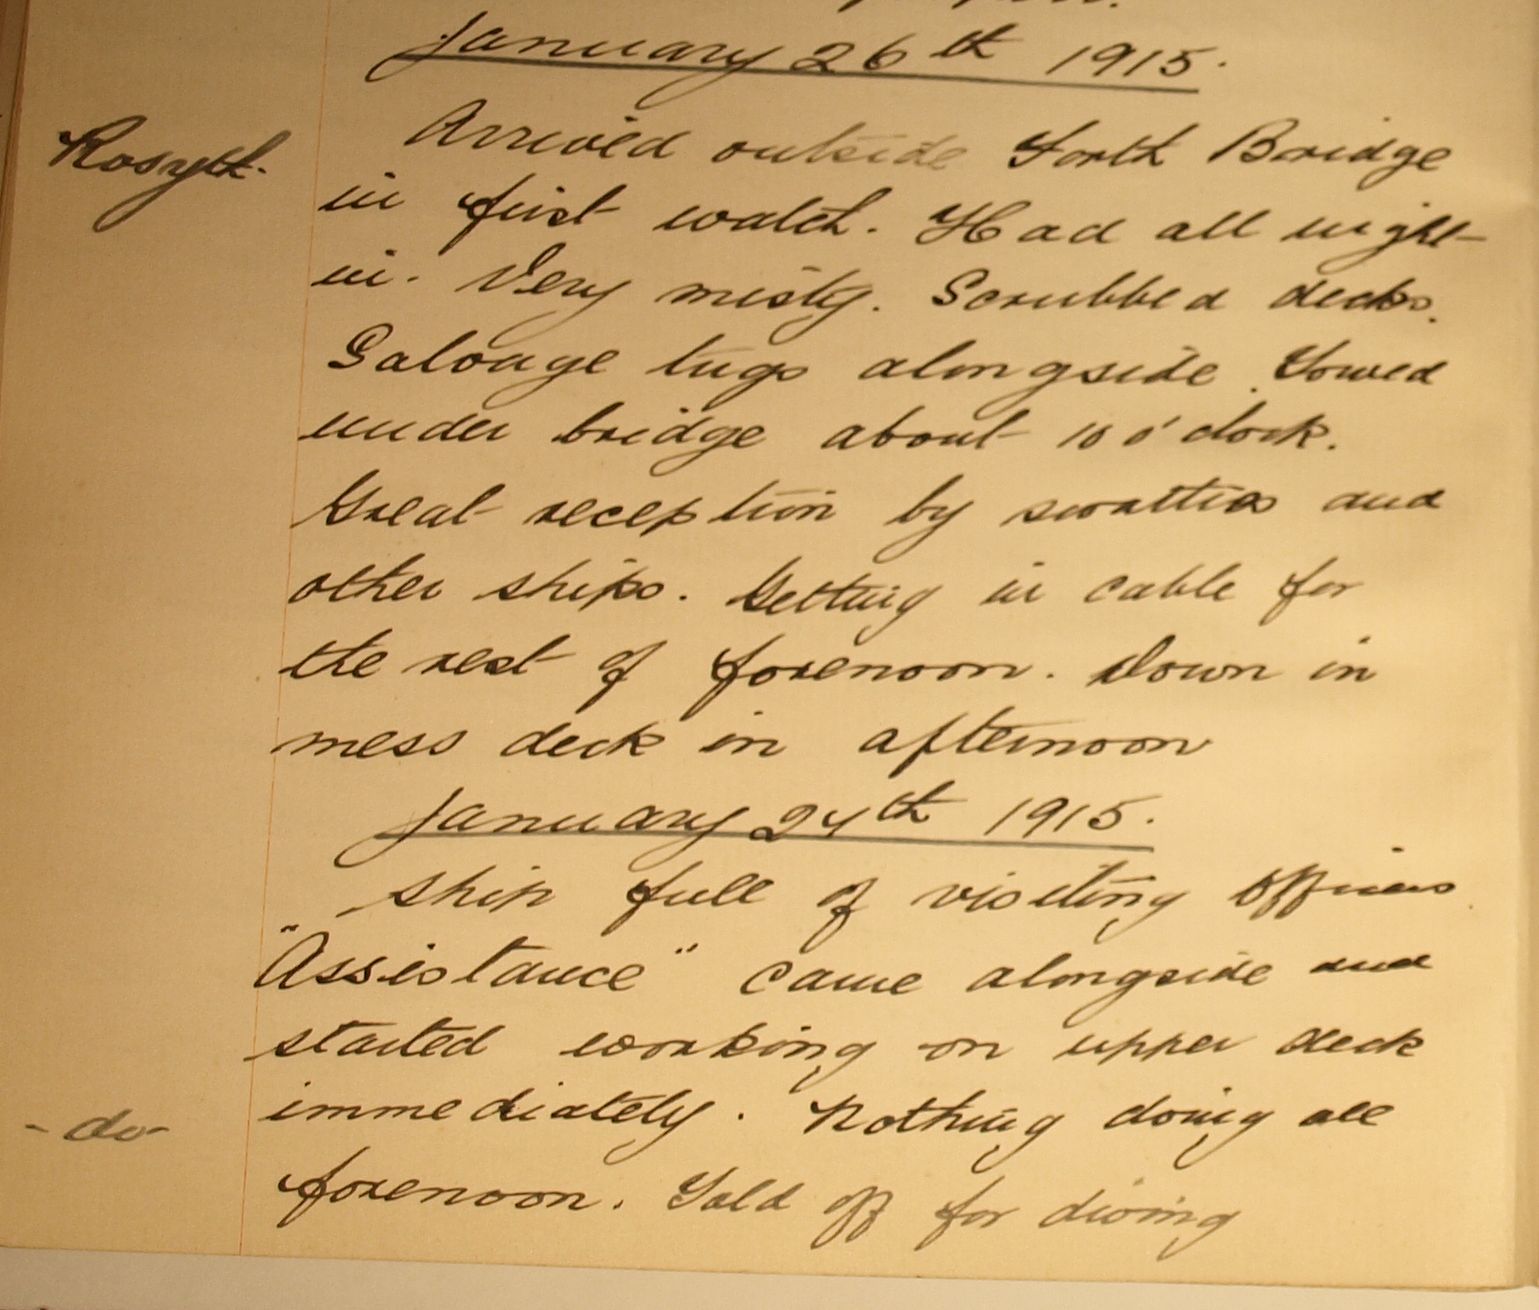 January 26th 1915.
Rosyth.
Arrived outside Forth Bridge
in first watch. Had all night
in. Very misty. Scrubbed decks.
Salvage tugs alongside. Towed
under bridge about 10 o'clock.
Great reception by swatties and
other ships. Getting in cable for
the rest of forenoon. Down in
mess deck in afternoon
January 27th 1915.
Ship full of visiting officers.
"Assistance" came alongside and
started working on upper deck
immediately. Nothing doing all
-do-
forenoon. Told off for diving